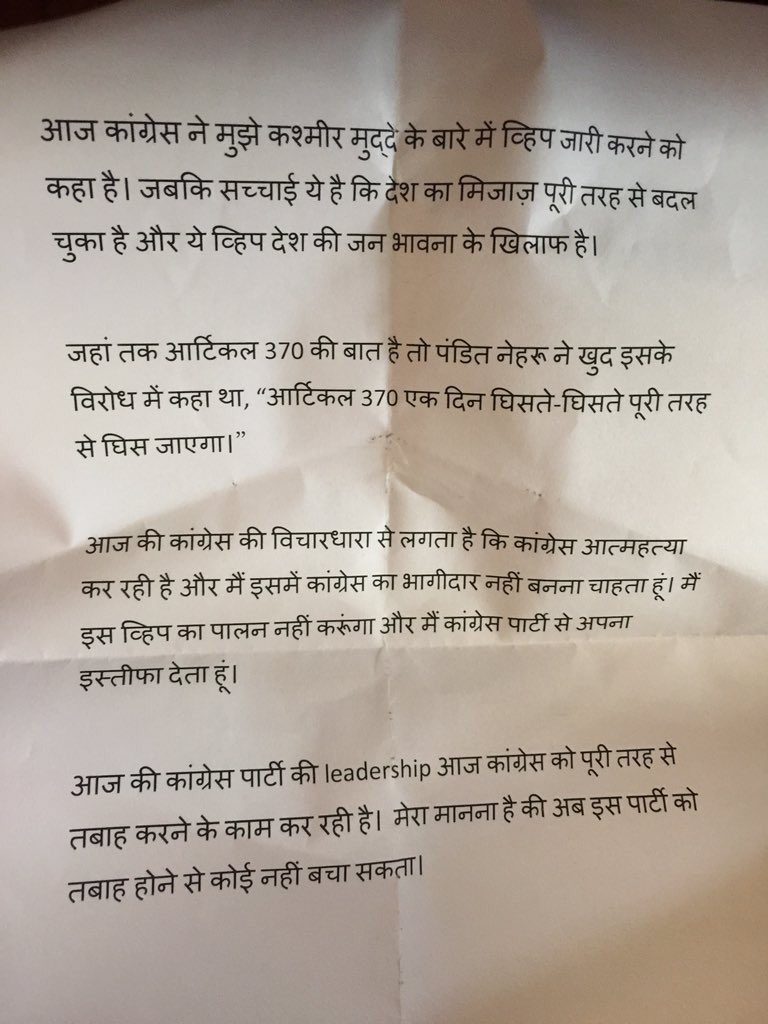 आज कांग्रेस ने मुझे कश्मीर मुद्दे के बारे में व्हिप जारी करने को
कहा है। जबकि सच्चाई ये है कि देश का मिजाज़ पूरी तरह से बदल
चुका है और ये व्हिप देश की जन भावना के खिलाफ है।
जहां तक आर्टिकल 370 की बात है तो पंडित नेहरू ने खुद इसके
विरोध में कहा था, “आर्टिकल 370 एक दिन घिसते-घिसते पूरी तरह
से घिस जाएगा।”
आज की कांग्रेस की विचारधारा से लगता है कि कांग्रेस आत्महत्या
कर रही है और मैं इसमें कांग्रेस का भागीदार नहीं बनना चाहता हूं। मैं
इस व्हिप का पालन नहीं करूंगा और मैं कांग्रेस पार्टी से अपना
इस्तीफा देता हूं।
आज की कांग्रेस पार्टी की leadership आज कांग्रेस को पूरी तरह से
तबाह करने के काम कर रही है। मेरा मानना है की अब इस पार्टी को
तबाह होने से कोई नहीं बचा सकता।